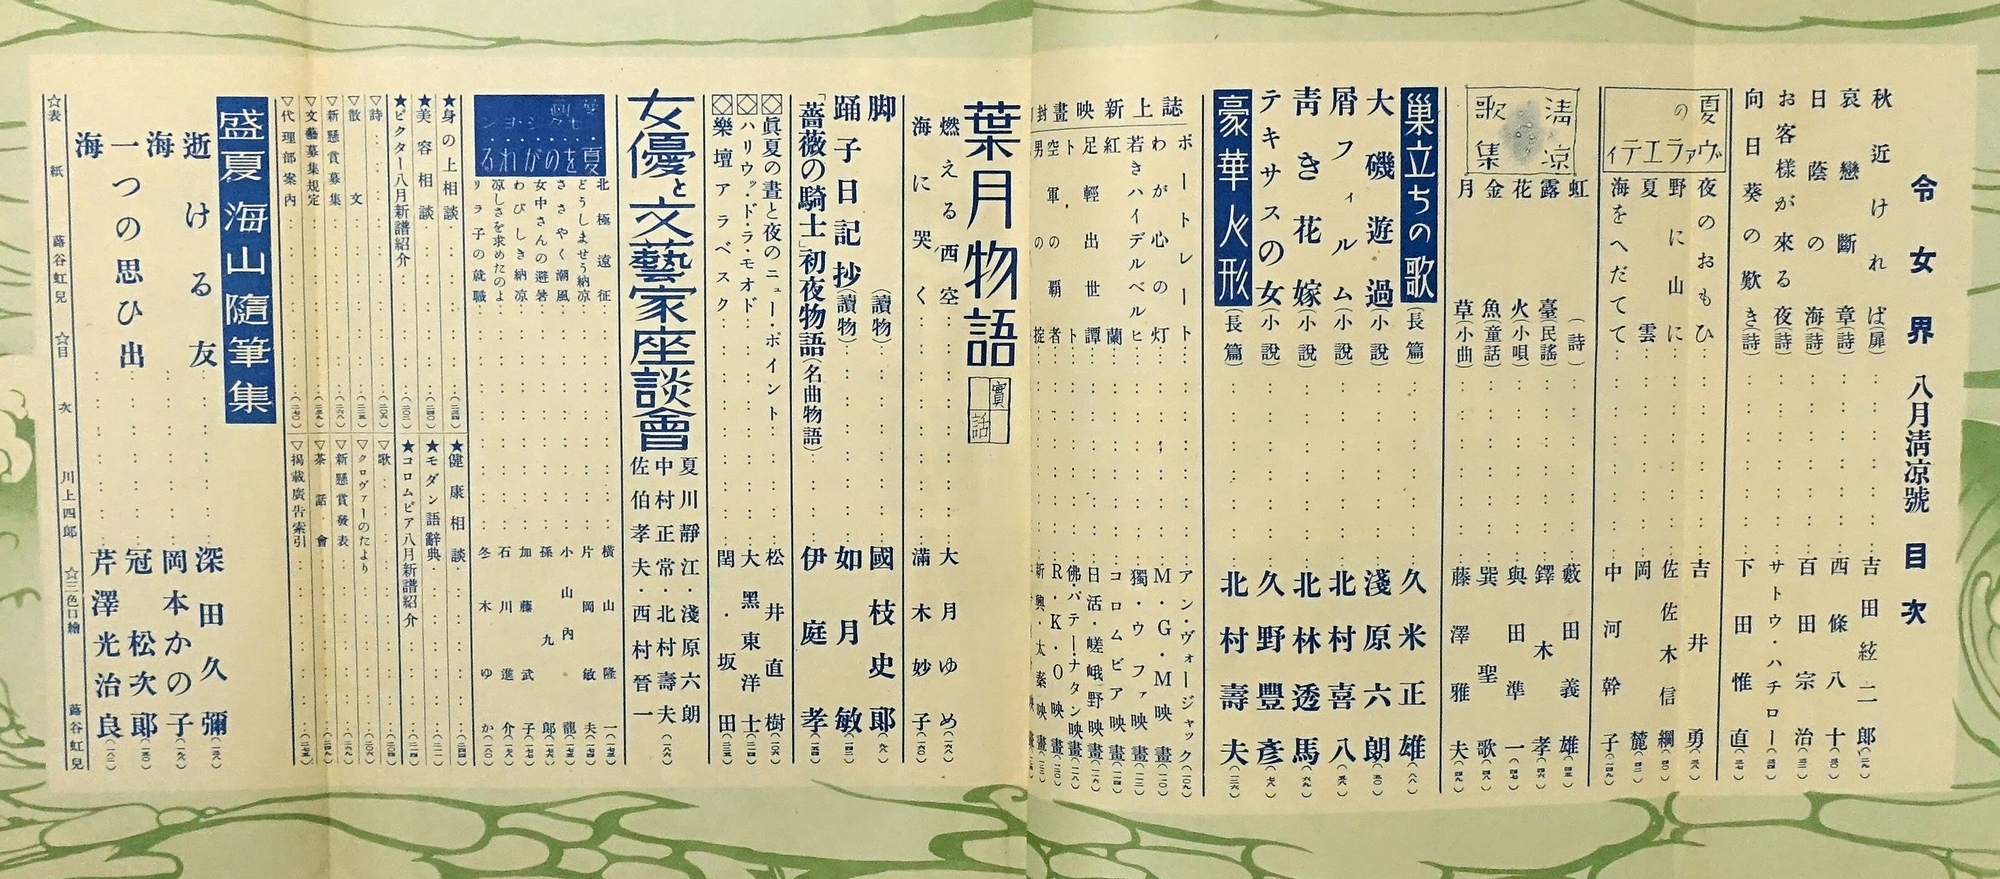 令女界 八月淸凉號 目次
秋近ければ(扉) 吉田絃二郎
哀戀斷章(詩) 西條八十
日蔭の海(詩) 百田宗治
お客様が來る夜(詩) サトウ・ハチロー
向日葵の歎き(詩) 下田惟直
夏のヴァラエティ
夜のおもひ 吉井勇
野に山に 佐佐木信綱
夏雲 岡麓
海をへだてて 中河幹子
淸凉歌集
虹(詩) 藪田義雄
露臺(民謠) 鐸木孝
花火(小唄) 與田準一
金魚(童話) 巽聖歌
月草(小曲) 藤澤雅夫
巣立ちの歌(長篇) 久米正雄
大磯遊過(小說) 淺原六朗
屑フィルム(小說) 北村喜八
靑き花嫁(小說) 北林透馬
テキサスの女(小說) 久野豐彥
豪華人形(長篇) 北村壽夫
誌上新映畫封
ボートレート アン・ヴォージャック
わが心の灯 M・G・M映畫
若きハイデルベルヒ 獨・ウファ映畫
紅蘭 コロムビア映畫
足輕出世譚 日活・嵯峨野映畫
ト 佛・パテー・ナタン映畫
空軍の覇者 R・K・O映畫
男の掟 新興・太秦映畫
葉月物語 實話
燃える西空 大月ゆめ
海に哭く 滿木妙子
脚(讀物) 國枝史郞
踊子日記抄(讀物) 如月敏
「薔薇の騎士」初夜物語(名曲物語) 伊庭孝
眞夏の晝と夜のニューポイント 松井直樹
ハリウッド・ラ・モオド 大黑東洋士
樂壇アラベスク 閏・坂田
女優と文藝家座談會
夏川靜江・淺原六朗
中村正常・北村壽夫
佐伯孝夫・西村晉一
夏をのがれる
北極遠征 橫山隆一
どうしませう納凉 片岡敏夫
ささやく潮風 小山內龍
女中さんの避暑 孫九郞
わびしき納凉 加藤武子
凉しさを求めたのよ 石川進介
リラ子の就職 冬木ゆか
★身の上相談
★美容相談
★ビクター八月新譜紹介
▽詩
▽散文
▽新懸賞募集
▽文藝募集規定
▽代理部案內
★健康相談
★モダン語辭典
★コロムビア八月新譜紹介
▽歌
▽クロヴァーのたより
▽新懸賞發表
▽茶話會
▽揭載廣告索引
盛夏海山隨筆集
逝ける友 深田久彌
海 岡本かの子
一つの思ひ出 冠松次郞
海 芹澤光治良
☆表紙 蕗谷虹兒 ☆目次 川上四郎 ☆三色口繪 蕗谷虹兒